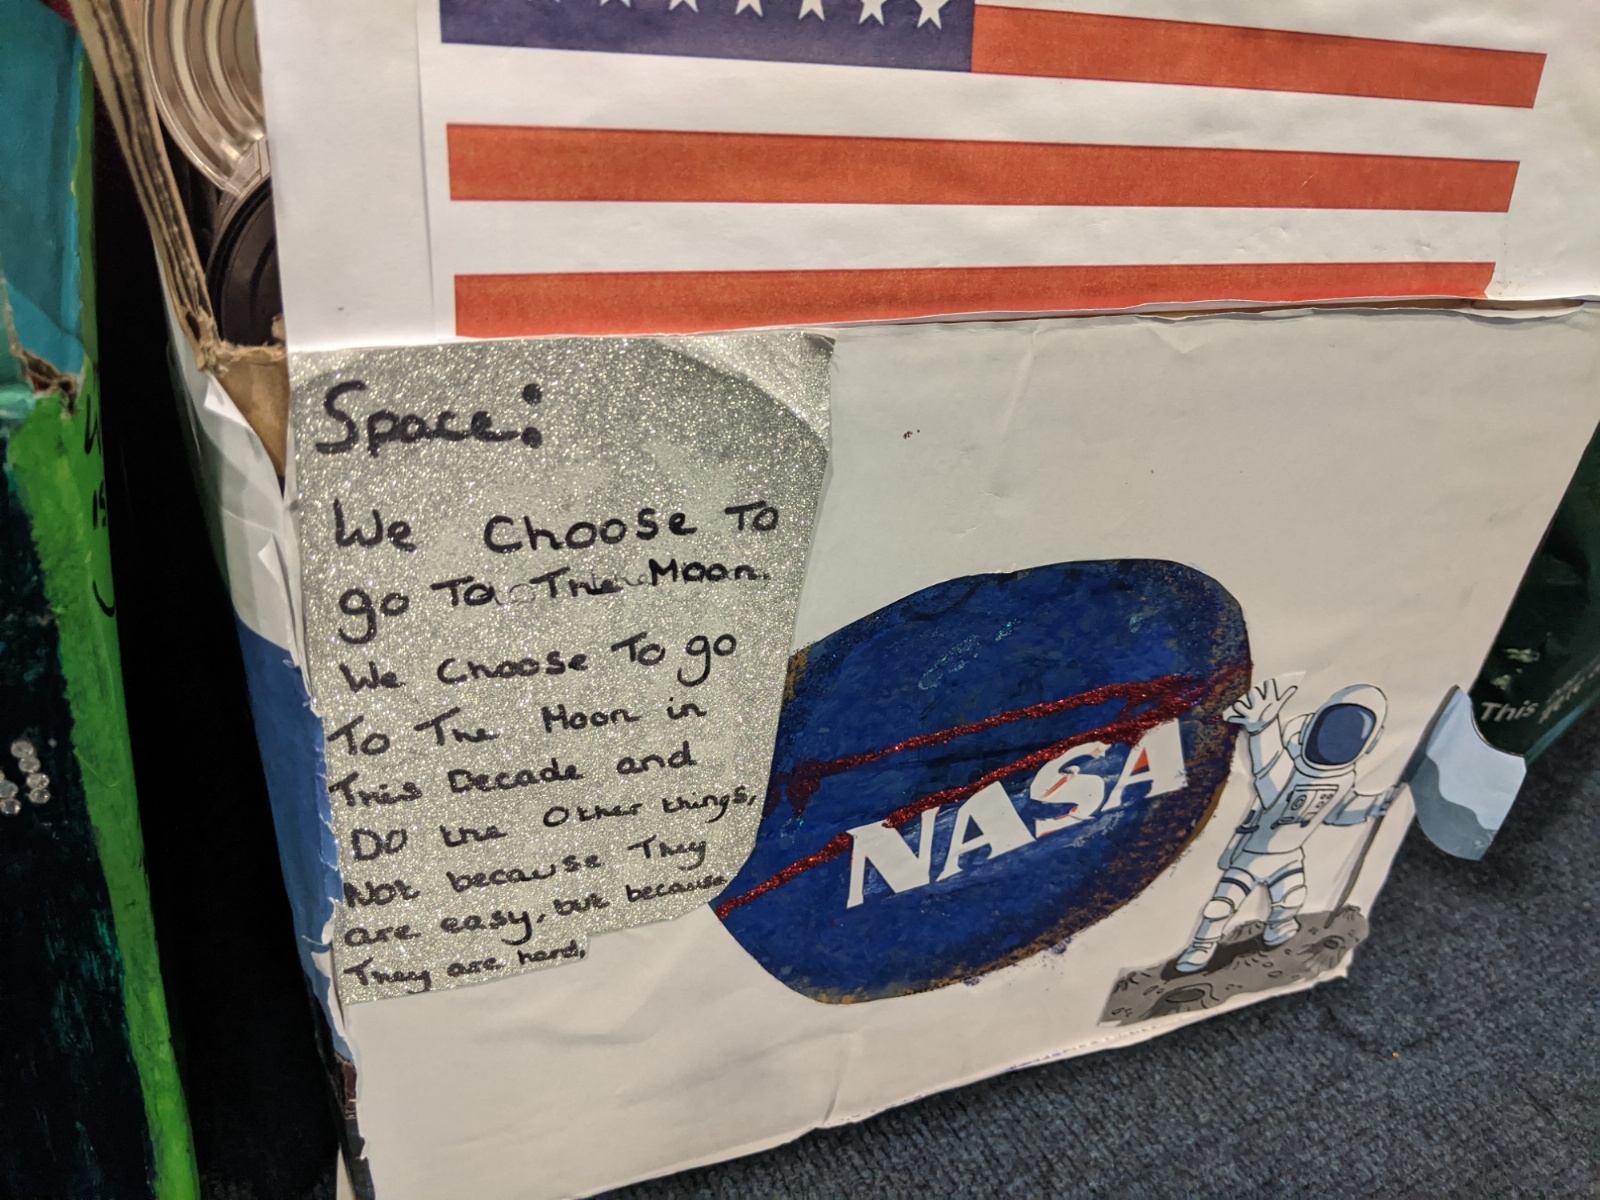 Space:
We Choose To
go To The Moon.
We Choose To go
To The Moon in
This Decade and
DO the Other things,
Not because They
are easy, but because
They are hard,
NASA
This
is